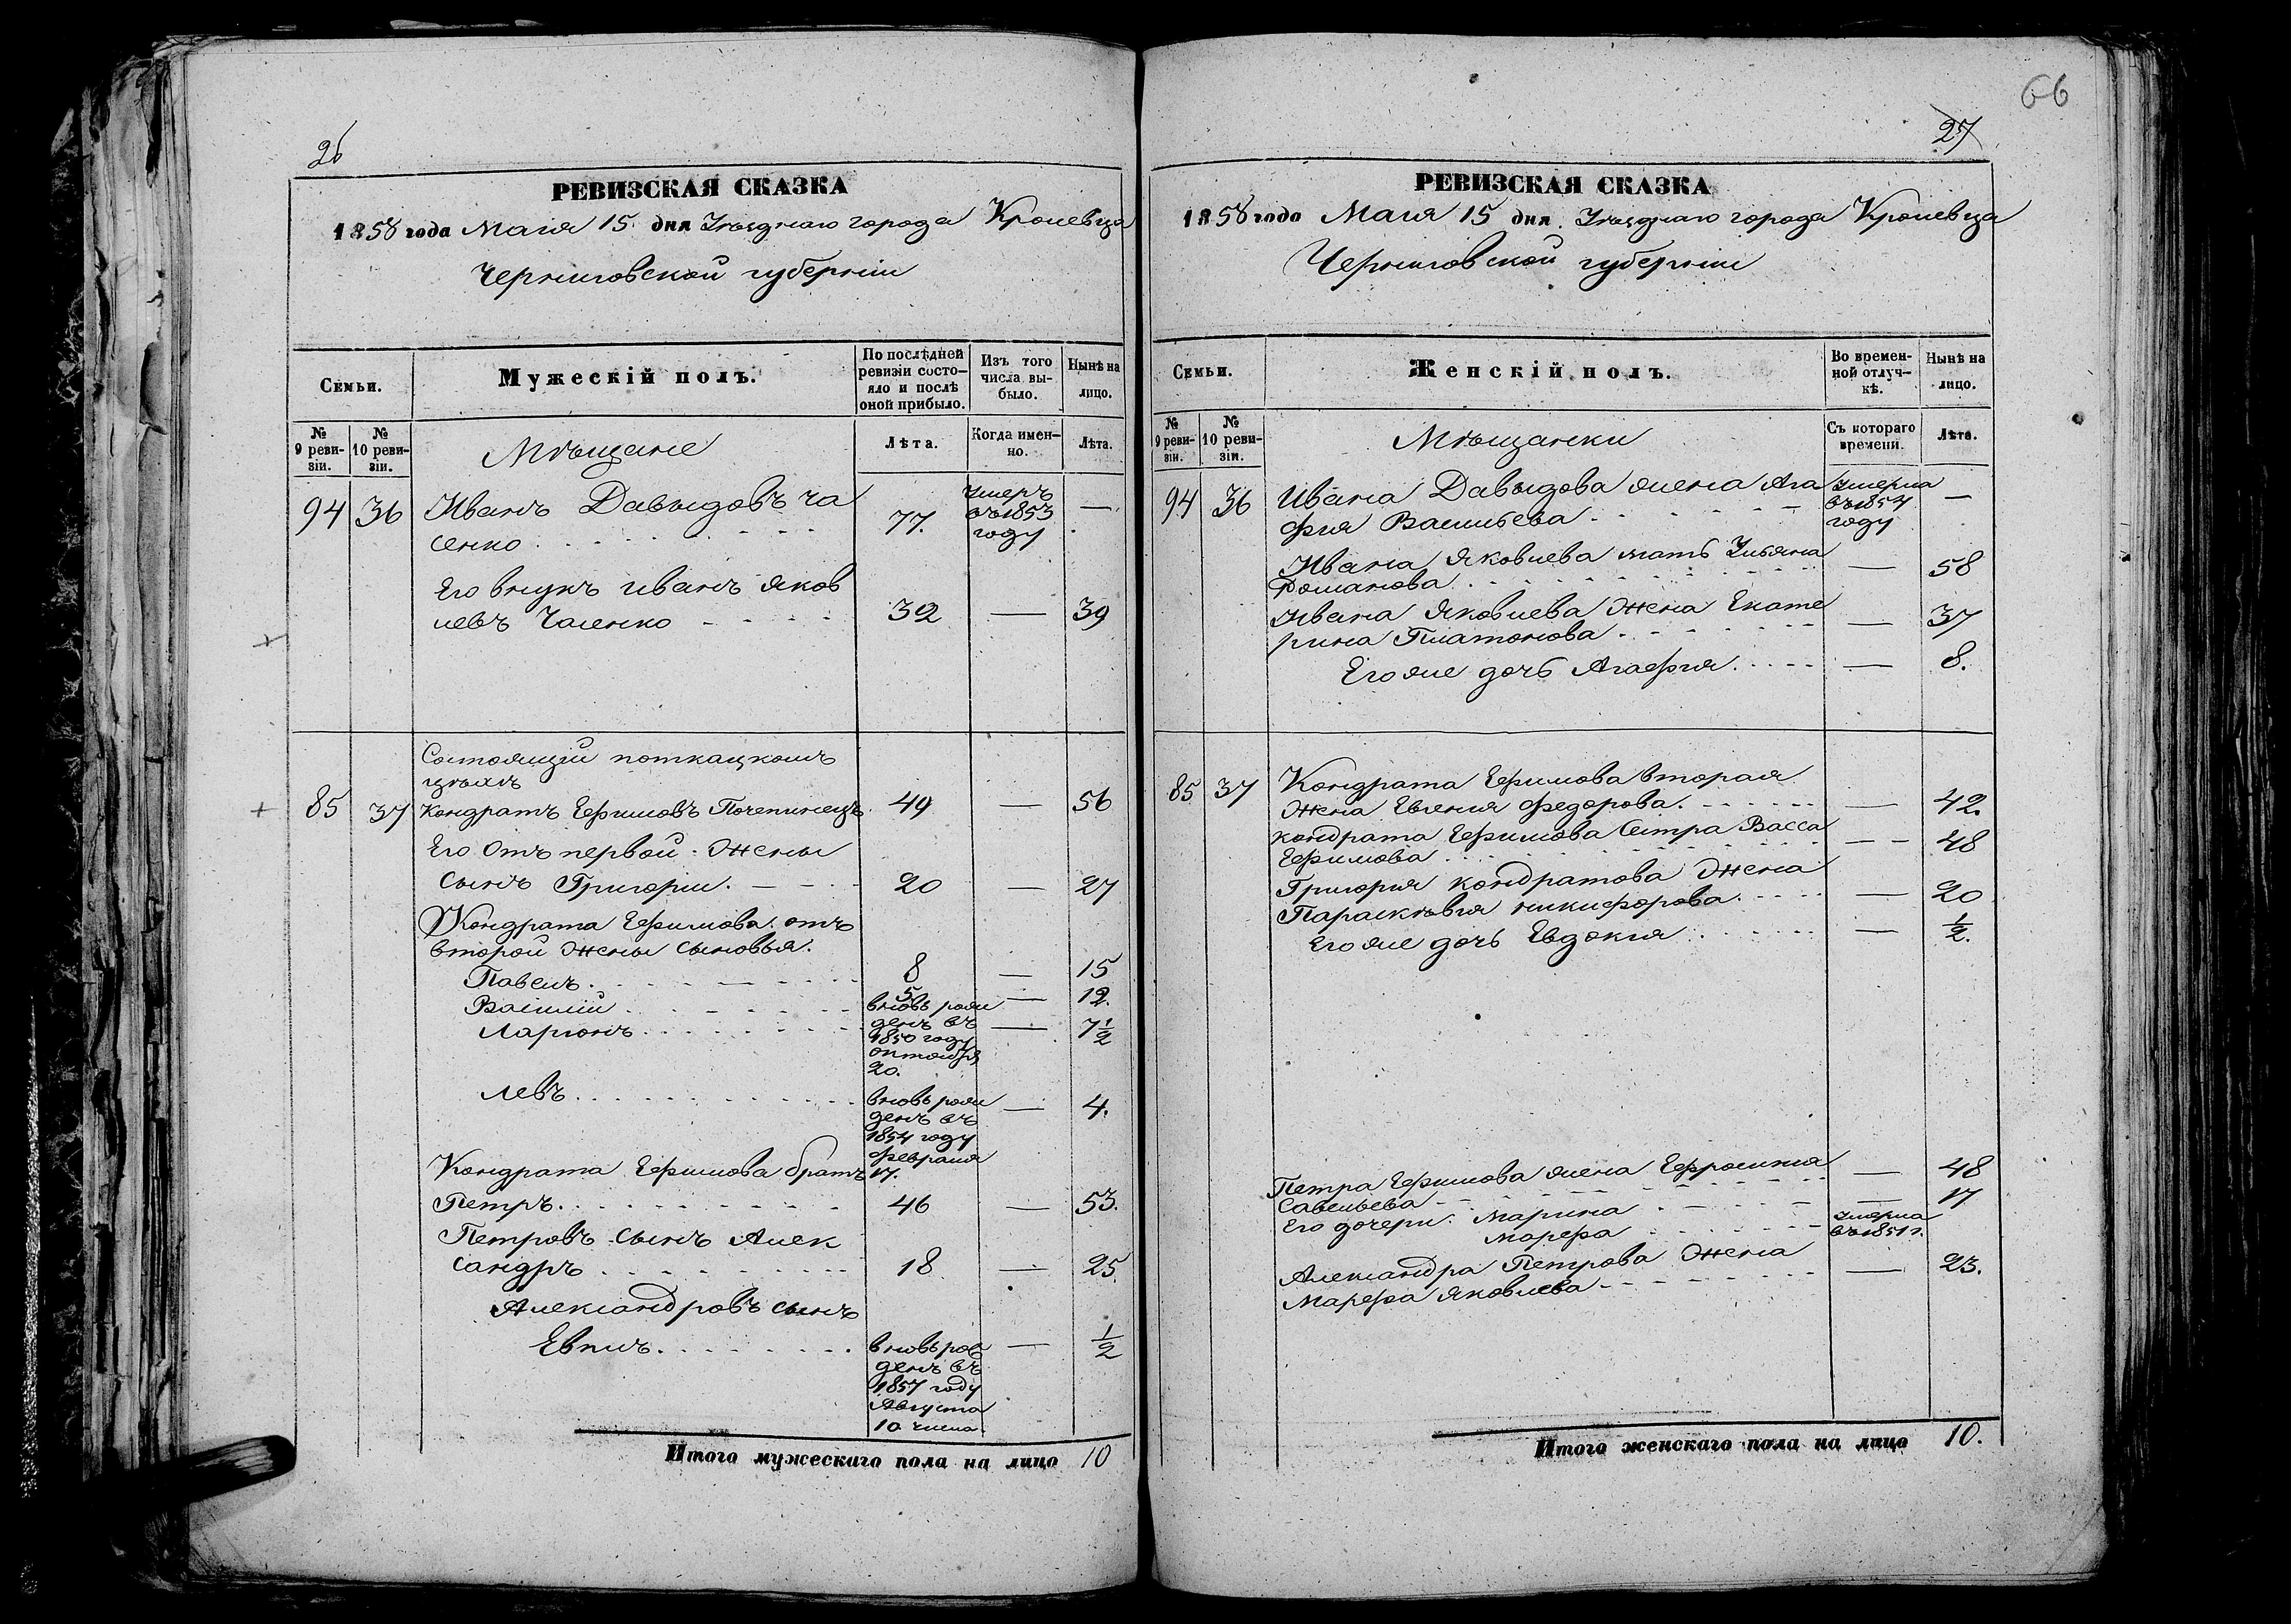 26
РЕВИЗСКАЯ СКАЗКА
1858 года Маія 15. дня Уѣзднаго города Кролевца
Черниговской губерніи
Семьи.
Мужескій полъ.
По послѣдней
ревизіи состо-
яло и послѣ
оной прибыло.
Изъ того
числа вы-
было.
Нынѣ на
лицо.
№
9 реви-
зіи.
№
10 реви-
зіи.
Мѣщане
Лѣта.
Когда имен-
но.
Лѣта.
94 36 Иванъ Давыдовъ Ча
сенко 77. умеръ
въ 1853
году —
Его внукъ Иванъ Яков
левъ Часенко 32 — 39
Состоящій поткацкомъ
цѣхѣ
85 37 Кондратъ Ефимовъ Почепинецъ 49 — 56
Его отъ первой жены
сынъ Григорій. 20 — 27
Кондрата Ефимова отъ
второй жены сыновья.
Павелъ. 8 — 15
Василій 5 — 12.
Ларіонъ вновь рож
денъ въ
1850 году
октября
20. — 7½
Левъ вновь рож
денъ въ
1854 году
февраля
17. — 4.
Кондрата Ефимова братъ
Петръ. 46 — 53.
Петровъ сынъ Алек
сандръ 18 — 25.
Александровъ сынъ
вновь рож
денъ въ
1857 году
Августа
10 числа. — ½
Итого мужескаго пола на лицо 10
66
27
РЕВИЗСКАЯ СКАЗКА
1858 года Маія 15 дня. Уѣзднаго города Кролевца
Черниговской губерніи
Семьи.
Женскій полъ.
Во времен-
ной отлуч-
кѣ.
Нынѣ на
лицо.
№
9 реви-
зіи.
№
10 реви-
зіи.
Мѣщанки
Съ котораго
времени.
Лѣта.
94 36 Ивана Давыдова жена Ага
фія Васильева умерла
въ 1854
году —
Ивана Яковлева мать Ульяна
Романова — 58
Ивана Яковлева жена Екате
рина Платонова — 37
Его же дочь Агафія — 8.
85 37 Кондрата Ефимова вторая
жена Евгенія Федорова. — 42.
Кондрата Ефимова сестра Васса
Ефимова — — 48
Григорія Кондратова жена
Параскѣвія Никифорова — 20
Его же дочь Евдокія — ½.
Петра Ефимова жена Ефросинія
Савельева — 48
Его дочери. Марина — 17
Марфа умерла
въ 1851 г.
Александра Петрова жена
Марфа Яковлева — 23.
Итого женскаго пола на лицо 10.